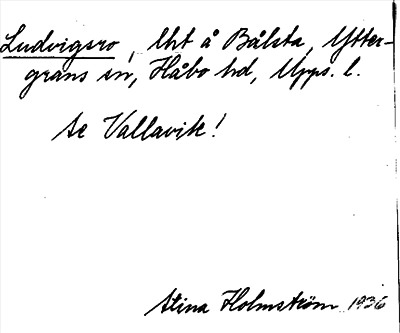 Ludvigsro, lht å Bålsta, Ytter-
grans sn, Håbo hd, Upps. l.
Se Vallavik!
Stina Holmström 1936